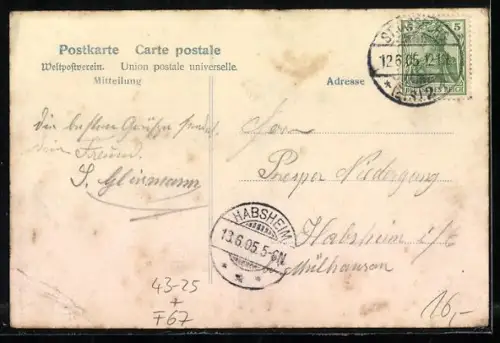 Postkarte Carte postale
Weltpostverein. Union postale universelle.
Mitteilung
Adresse
5
12.6.05.12-1
DEUTSCHES REICH
die besten Grüße sendet
dein Freund
S.
Herrn
Prosper
Habsheim i/E
Mülhausen
HABSHEIM
13.6.05.5-6N.
43-25
+
F67
16,-